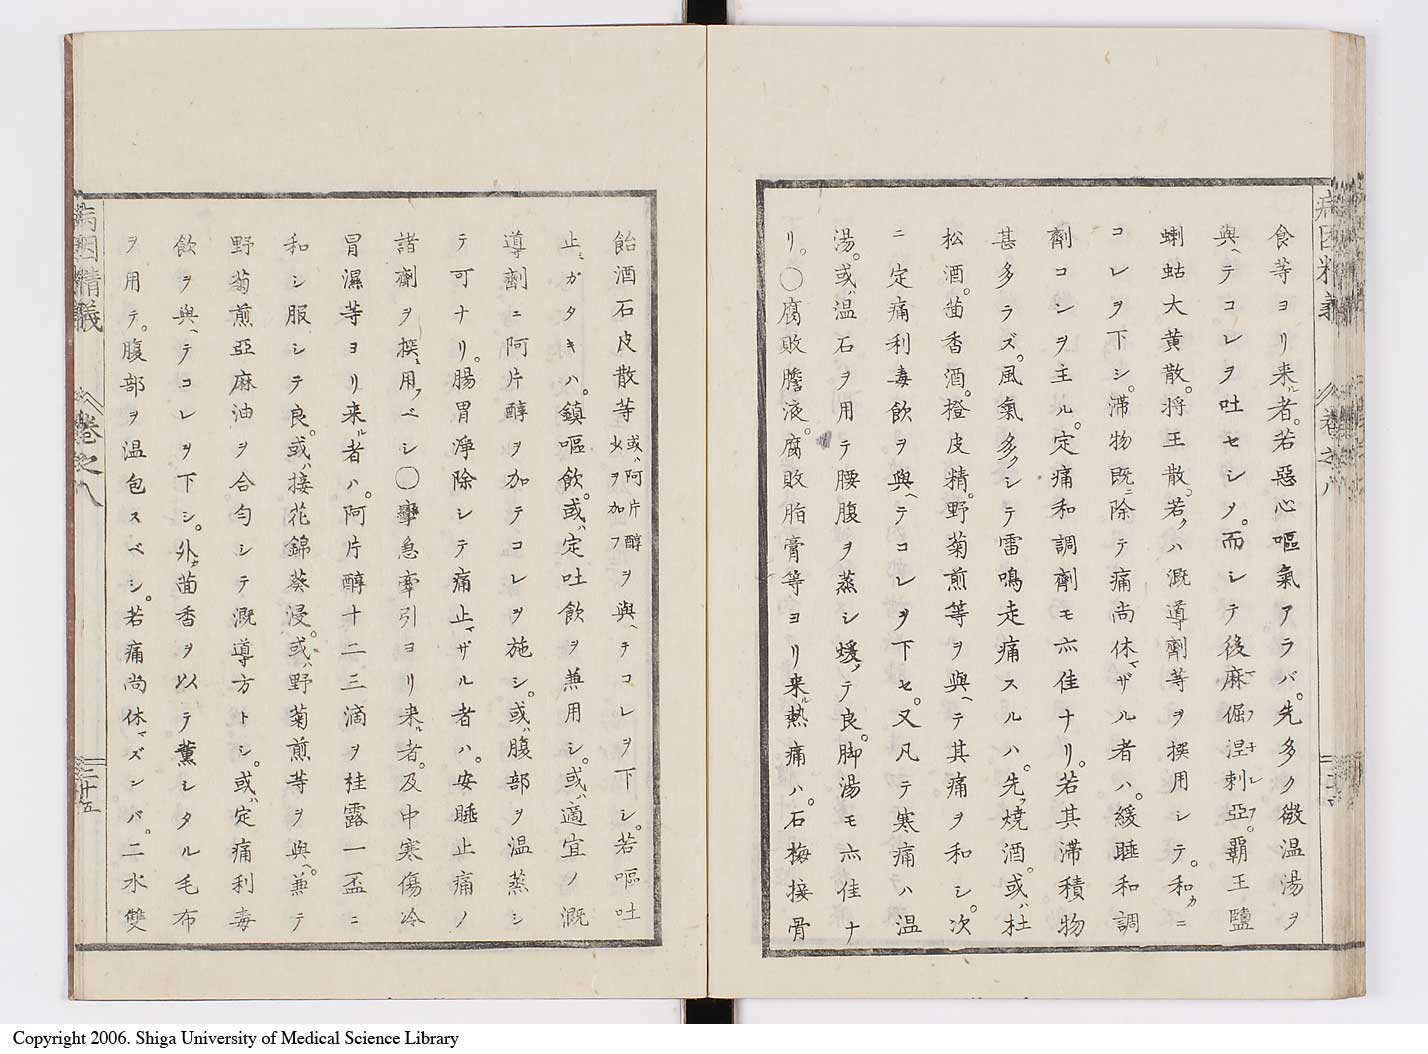 食等ヨリ来ル者。若惡心嘔氣アラバ。先多ク微温湯ヲ
與ヘテコレヲ吐セシメ。而シテ後麻倔涅刺亞。覇王鹽
蝲蛄大黄散。将王散。若クハ漑導劑等ヲ撰用シテ。和カニ
コレヲ下シ。滞物既ニ除テ痛尚休マザル者ハ。緩睡和調
劑コンヲ主ル。定痛和調劑モ亦佳ナリ。若其滞積物
甚多ラズ。風氣多クシテ雷鳴走痛スルハ。先ツ燒酒。或ハ杜
松酒。茴香酒。橙皮精。野菊煎等ヲ與ヘテ其痛ヲ和シ。次
ニ定痛利毒飲ヲ與ヘテコレヲ下セ。又凡テ寒痛ハ温
湯。或ハ温石ヲ用テ腰腹ヲ蒸シ煖メテ良。脚湯モ亦佳ナ
リ。○腐敗膽液。腐敗脂膏等ヨリ来ル熱痛ハ。石梅接骨
病因精義 巻之八
飴酒石皮散等或ハ阿片醇少ヲ加フヲ與ヘテコレヲ下シ。若嘔吐
止ミガタキハ。鎮嘔飲。或ハ定吐飲ヲ兼用シ。或ハ適宜ノ漑
導劑ニ阿片醇ヲ加テコレヲ施シ。或ハ腹部ヲ温蒸シ
テ可ナリ。腸胃淨除シテ痛止マザル者ハ。安睡止痛ノ
諸劑ヲ撰ミ用フベシ○攣急牽引ヨリ来ル者。及中寒傷冷
冒濕等ヨリ来ル者ハ。阿片醇十二三滴ヲ桂露一盃ニ
和シ服シテ良。或ハ接花錦葵浸。或ハ野菊煎等ヲ與ヘ。兼テ
野菊煎亞麻油ヲ合匀シテ漑導方トシ。或ハ定痛利毒
飲ヲ與ヘテコレヲ下シ。外カ茴香ヲ以テ薫シタル毛布
ヲ用テ。腹部ヲ温包スベシ。若痛尚休マズンバ。二水雙
病因精義 巻之八 二十五
Copyright 2006. Shiga University of Medical Science Library